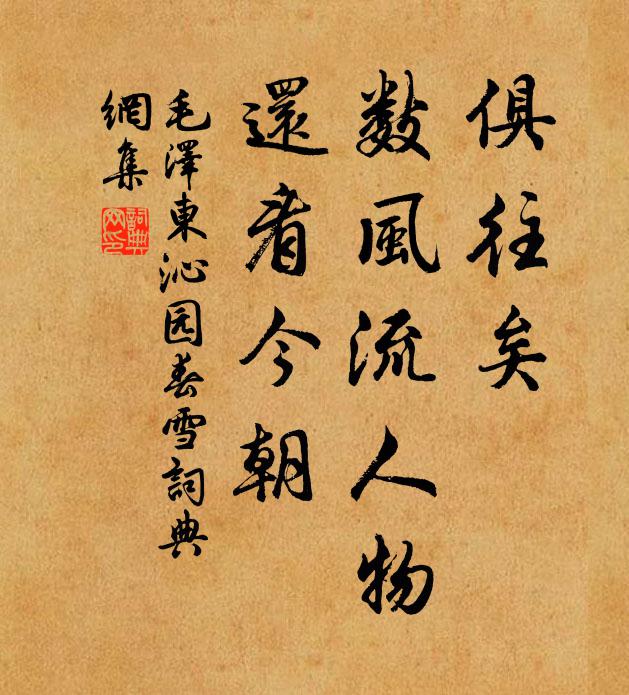 俱往矣
数風流人物
還看今朝
毛澤東沁园春雪詞典
網集
詞典
网印